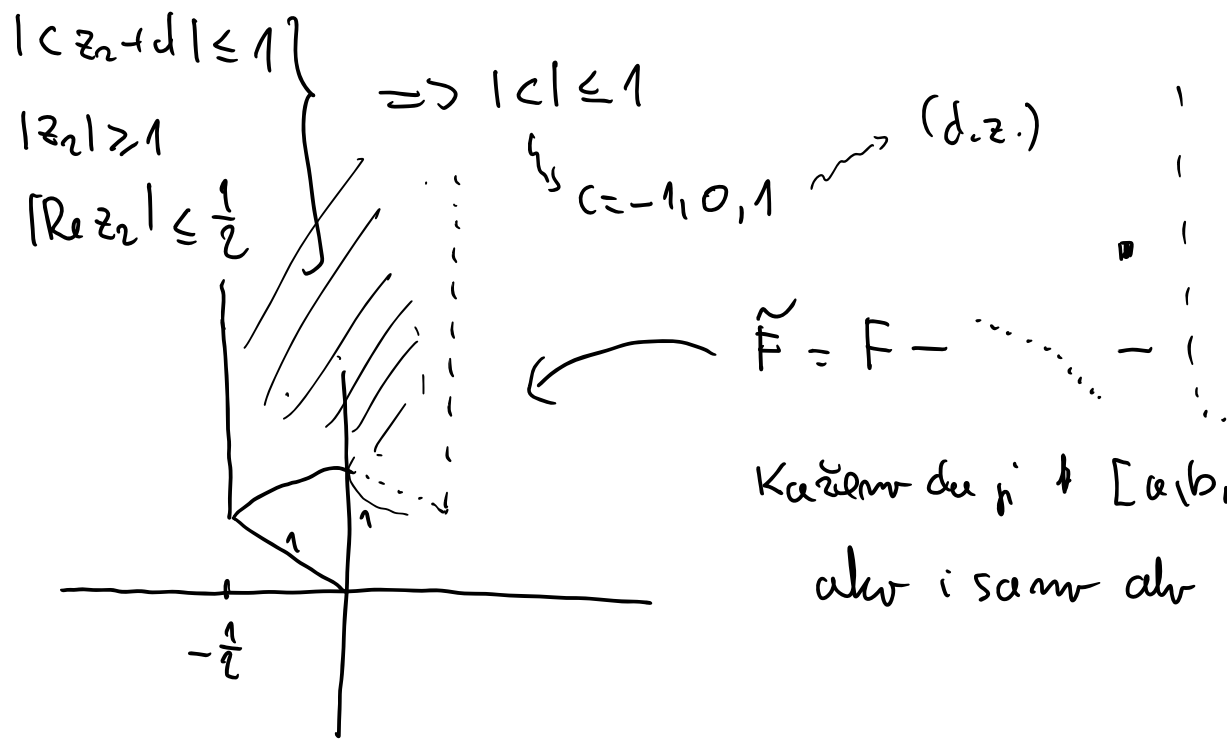 |cz₂+d| ≤ 1
|z₂| ≥ 1
|Re z₂| ≤ 1/2
=> |c| ≤ 1
c = -1, 0, 1
(d.z.)
F̃ = F - -
Kažemo da je [a,b,
ako i samo ako
1
1
-1/2